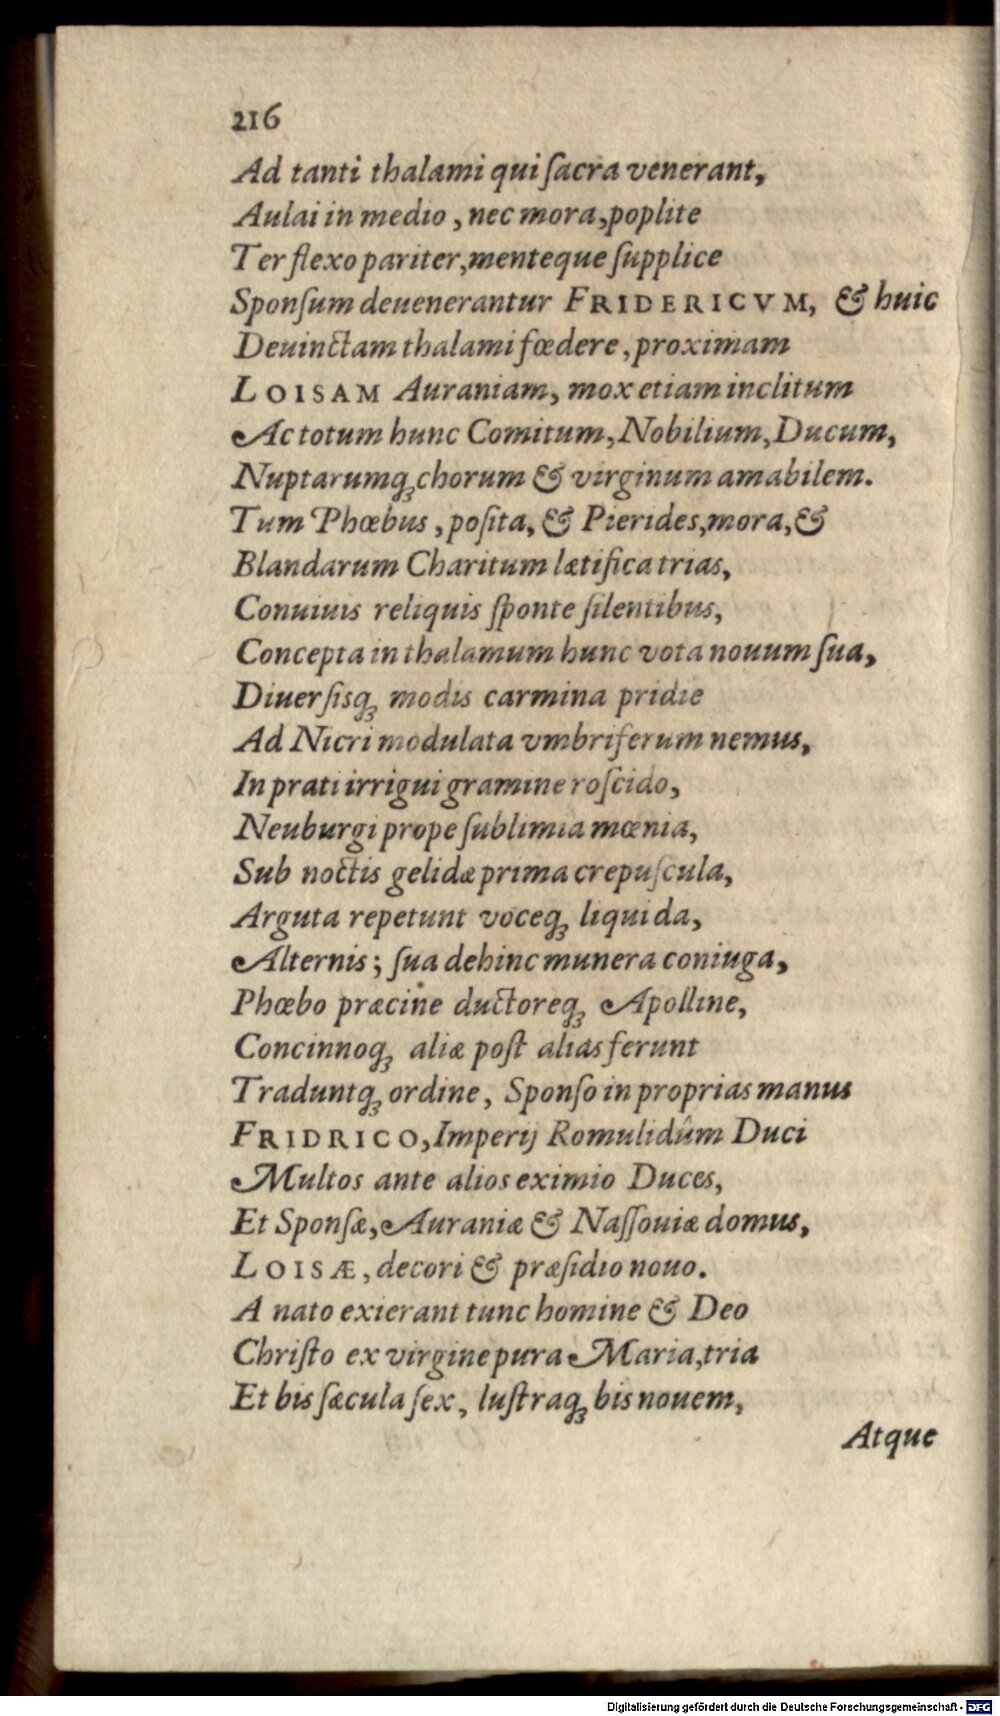 216
Ad tanti thalami qui ſacra venerant,
Aulai in medio, nec mora, poplite
Ter flexo pariter, menteque ſupplice
Sponſum deuenerantur FRIDERICVM, & huic
Deuinctam thalami fœdere, proximam
LOISAM Auraniam, mox etiam inclitum
Ac totum hunc Comitum, Nobilium, Ducum,
Nuptarumq́ꝫ chorum & virginum amabilem.
Tum Phœbus, poſita, & Pierides, mora, &
Blandarum Charitum lætifica trias,
Conuiuis reliquis ſponte ſilentibus,
Concepta in thalamum hunc vota nouum ſua,
Diuerſisqꝫ modis carmina pridie
Ad Nicri modulata vmbriferum nemus,
In prati irrigui gramine roſcido,
Neuburgi prope ſublimia mœnia,
Sub noctis gelidæ prima crepuſcula,
Arguta repetunt voceqꝫ liquida,
Alternis; ſua dehinc munera coniuga,
Phœbo præcine ductoreqꝫ Apolline,
Concinnoqꝫ aliæ poſt alias ferunt
Traduntqꝫ ordine, Sponſo in proprias manus
FRIDRICO, Imperij Romulidûm Duci
Multos ante alios eximio Duces,
Et Sponſæ, Auraniæ & Naſſouiæ domus,
LOISÆ, decori & præſidio nouo.
A nato exierant tunc homine & Deo
Chriſto ex virgine pura Maria, tria
Et bis ſæcula ſex, luſtraqꝫ bis nouem,
Atque
Digitalisierung gefördert durch die Deutsche Forschungsgemeinschaft - DFG